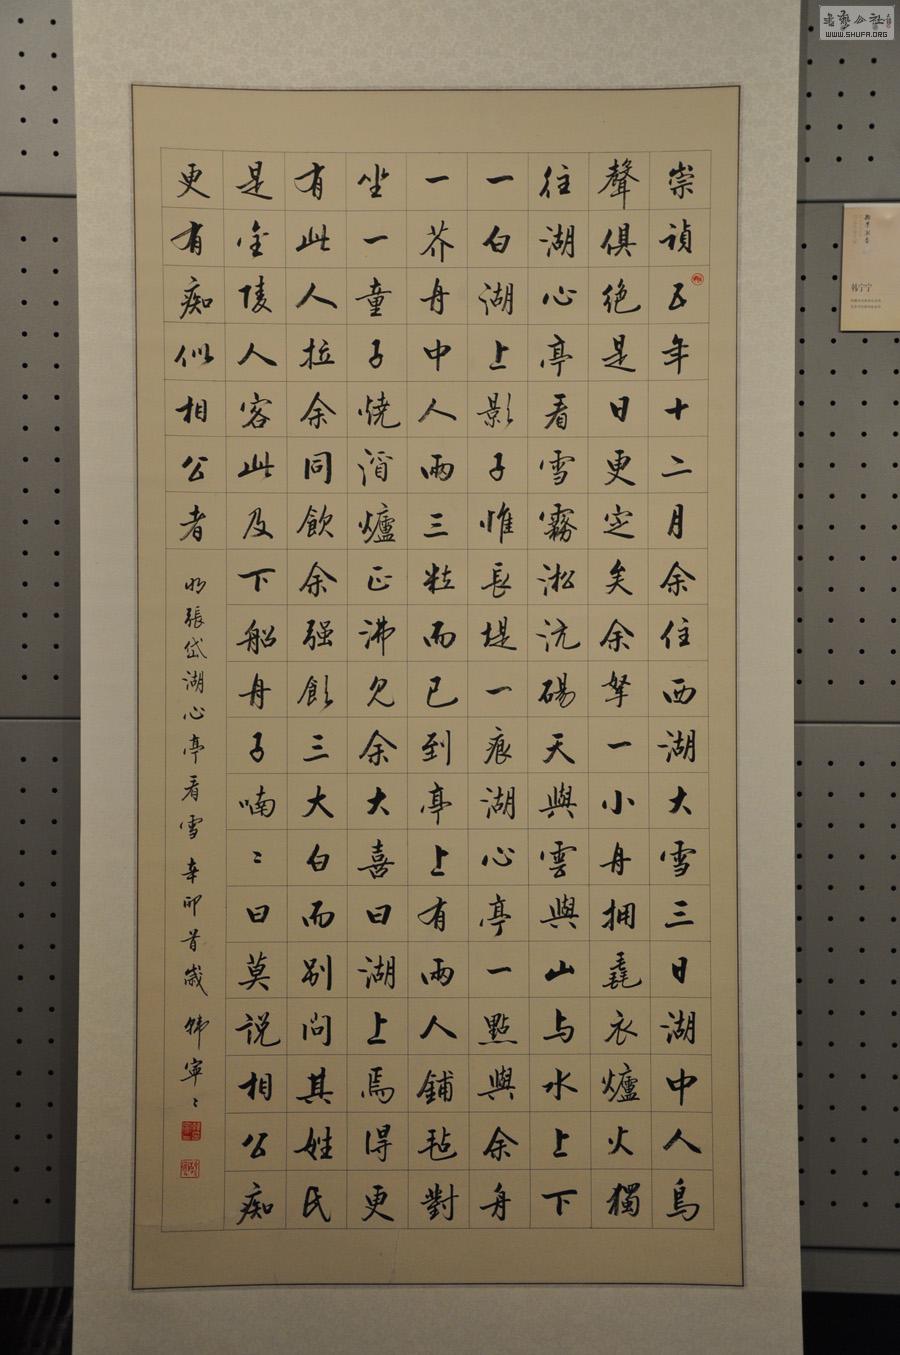 崇禎五年十二月余住西湖大雪三日湖中人鳥
聲俱絕是日更定矣余拏一小舟拥毳衣爐火獨
往湖心亭看雪霧淞沆碭天與雲與山与水上下
一白湖上影子惟長堤一痕湖心亭一點與余舟
一芥舟中人兩三粒而已到亭上有兩人鋪毡對
坐一童子燒酒爐正沸見余大喜曰湖上焉得更
有此人拉余同飲余强飲三大白而別問其姓氏
是金陵人客此及下船舟子喃〻曰莫説相公痴
更有痴似相公者
明張岱湖心亭看雪 辛卯首歲 韩寧〻
韩宁宁
书艺公社
WWW.SHUFA.ORG